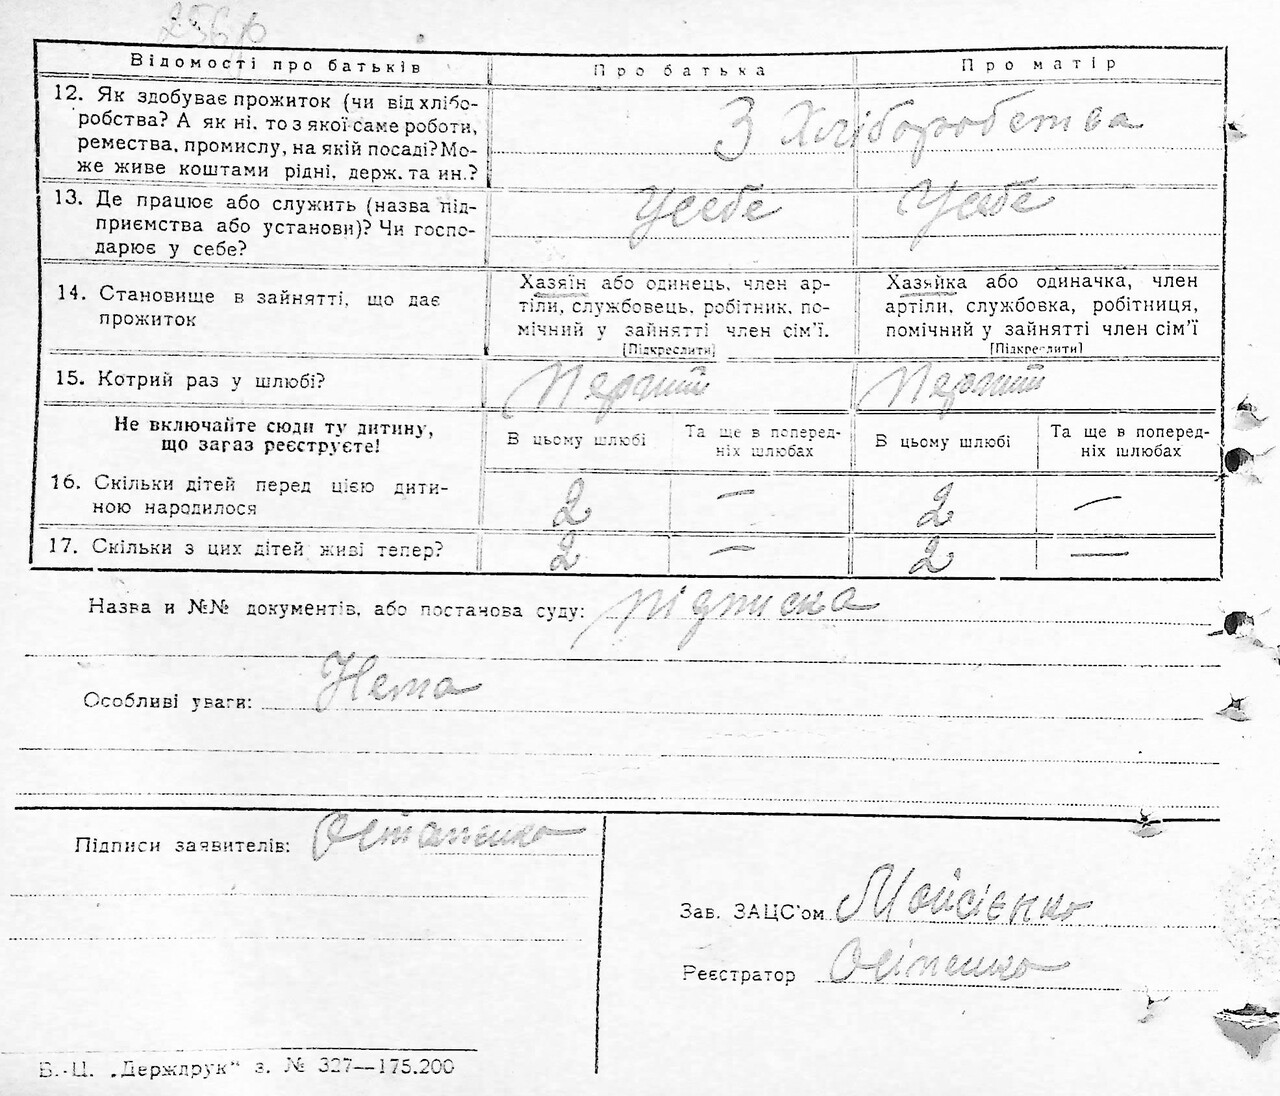 256 р
Відомості про батьків
Про батька
Про матір
12. Як здобуває прожиток (чи від хлібо-
робства? А як ні, то з якої саме роботи,
ремества, промислу, на якій посаді? Мо-
же живе коштами рідні, держ. та ин.?
З Хліборобства
13. Де працює або служить (назва під-
приємства або установи)? Чи госпо-
дарює у себе?
Усебе
Усебе
14. Становище в зайнятті, що дає
прожиток
Хазяїн або одинець, член ар-
тіли, службовець, робітник, по-
мічний у зайнятті член сім'ї.
[Підкреслити]
Хазяйка або одиначка, член
артіли, службовка, робітниця,
помічний у зайнятті член сім'ї
[Підкреслити]
15. Котрий раз у шлюбі?
Перший
Перший
Не включайте сюди ту дитину,
що зараз реєструєте!
В цьому шлюбі
Та ще в поперед-
ніх шлюбах
В цьому шлюбі
Та ще в поперед-
ніх шлюбах
16. Скільки дітей перед цією дити-
ною народилося
2 — 2 —
17. Скільки з цих дітей живі тепер?
2 — 2 —
Назва и №№ документів, або постанова суду: підписка
Особливі уваги: Нема
Підписи заявителів: Остапенко
Зав. ЗАЦС'ом Мойсієнко
Реєстратор Осіпенко
В.-Ц. „Держдрук" з. № 327—175.200